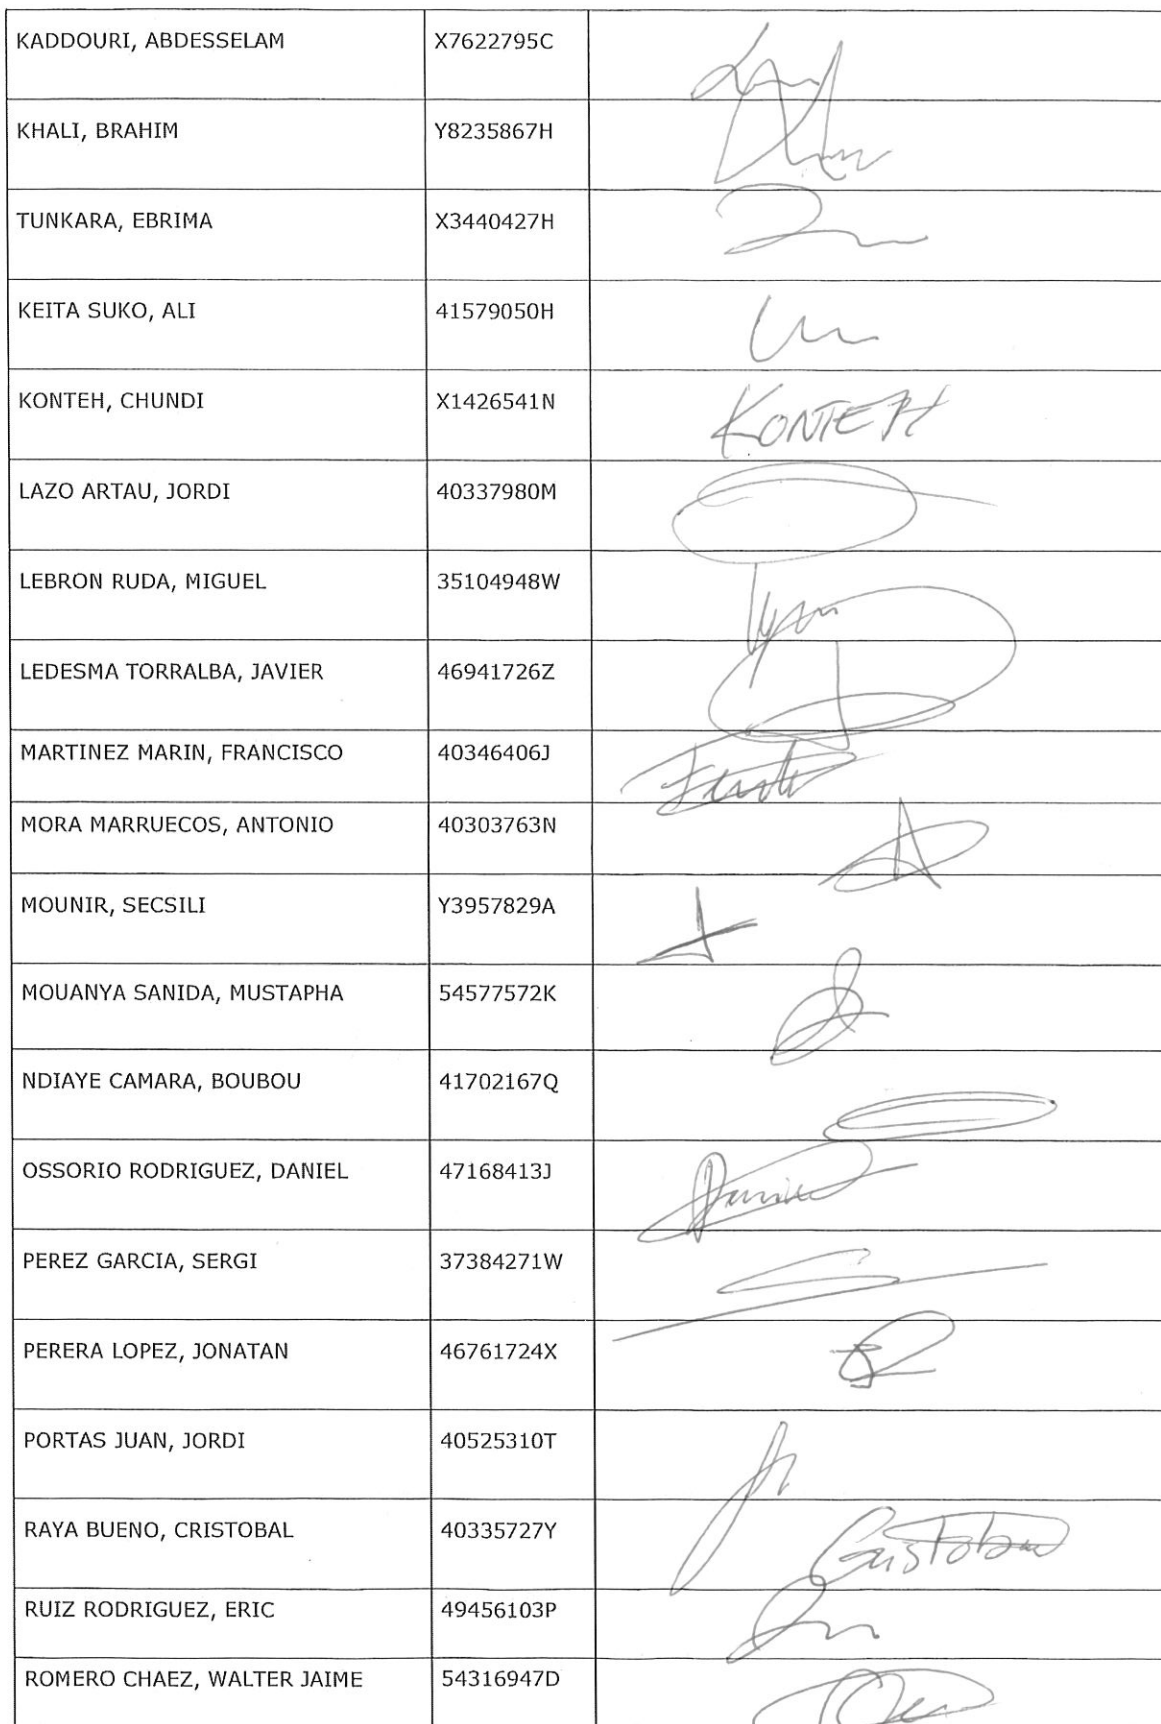 KADDOURI, ABDESSELAM X7622795C
KHALI, BRAHIM Y8235867H
TUNKARA, EBRIMA X3440427H
KEITA SUKO, ALI 41579050H
KONTEH, CHUNDI X1426541N KONTEH
LAZO ARTAU, JORDI 40337980M
LEBRON RUDA, MIGUEL 35104948W
LEDESMA TORRALBA, JAVIER 46941726Z
MARTINEZ MARIN, FRANCISCO 40346406J
MORA MARRUECOS, ANTONIO 40303763N
MOUNIR, SECSILI Y3957829A
MOUANYA SANIDA, MUSTAPHA 54577572K
NDIAYE CAMARA, BOUBOU 41702167Q
OSSORIO RODRIGUEZ, DANIEL 47168413J
PEREZ GARCIA, SERGI 37384271W
PERERA LOPEZ, JONATAN 46761724X
PORTAS JUAN, JORDI 40525310T
RAYA BUENO, CRISTOBAL 40335727Y Cristobal
RUIZ RODRIGUEZ, ERIC 49456103P
ROMERO CHAEZ, WALTER JAIME 54316947D